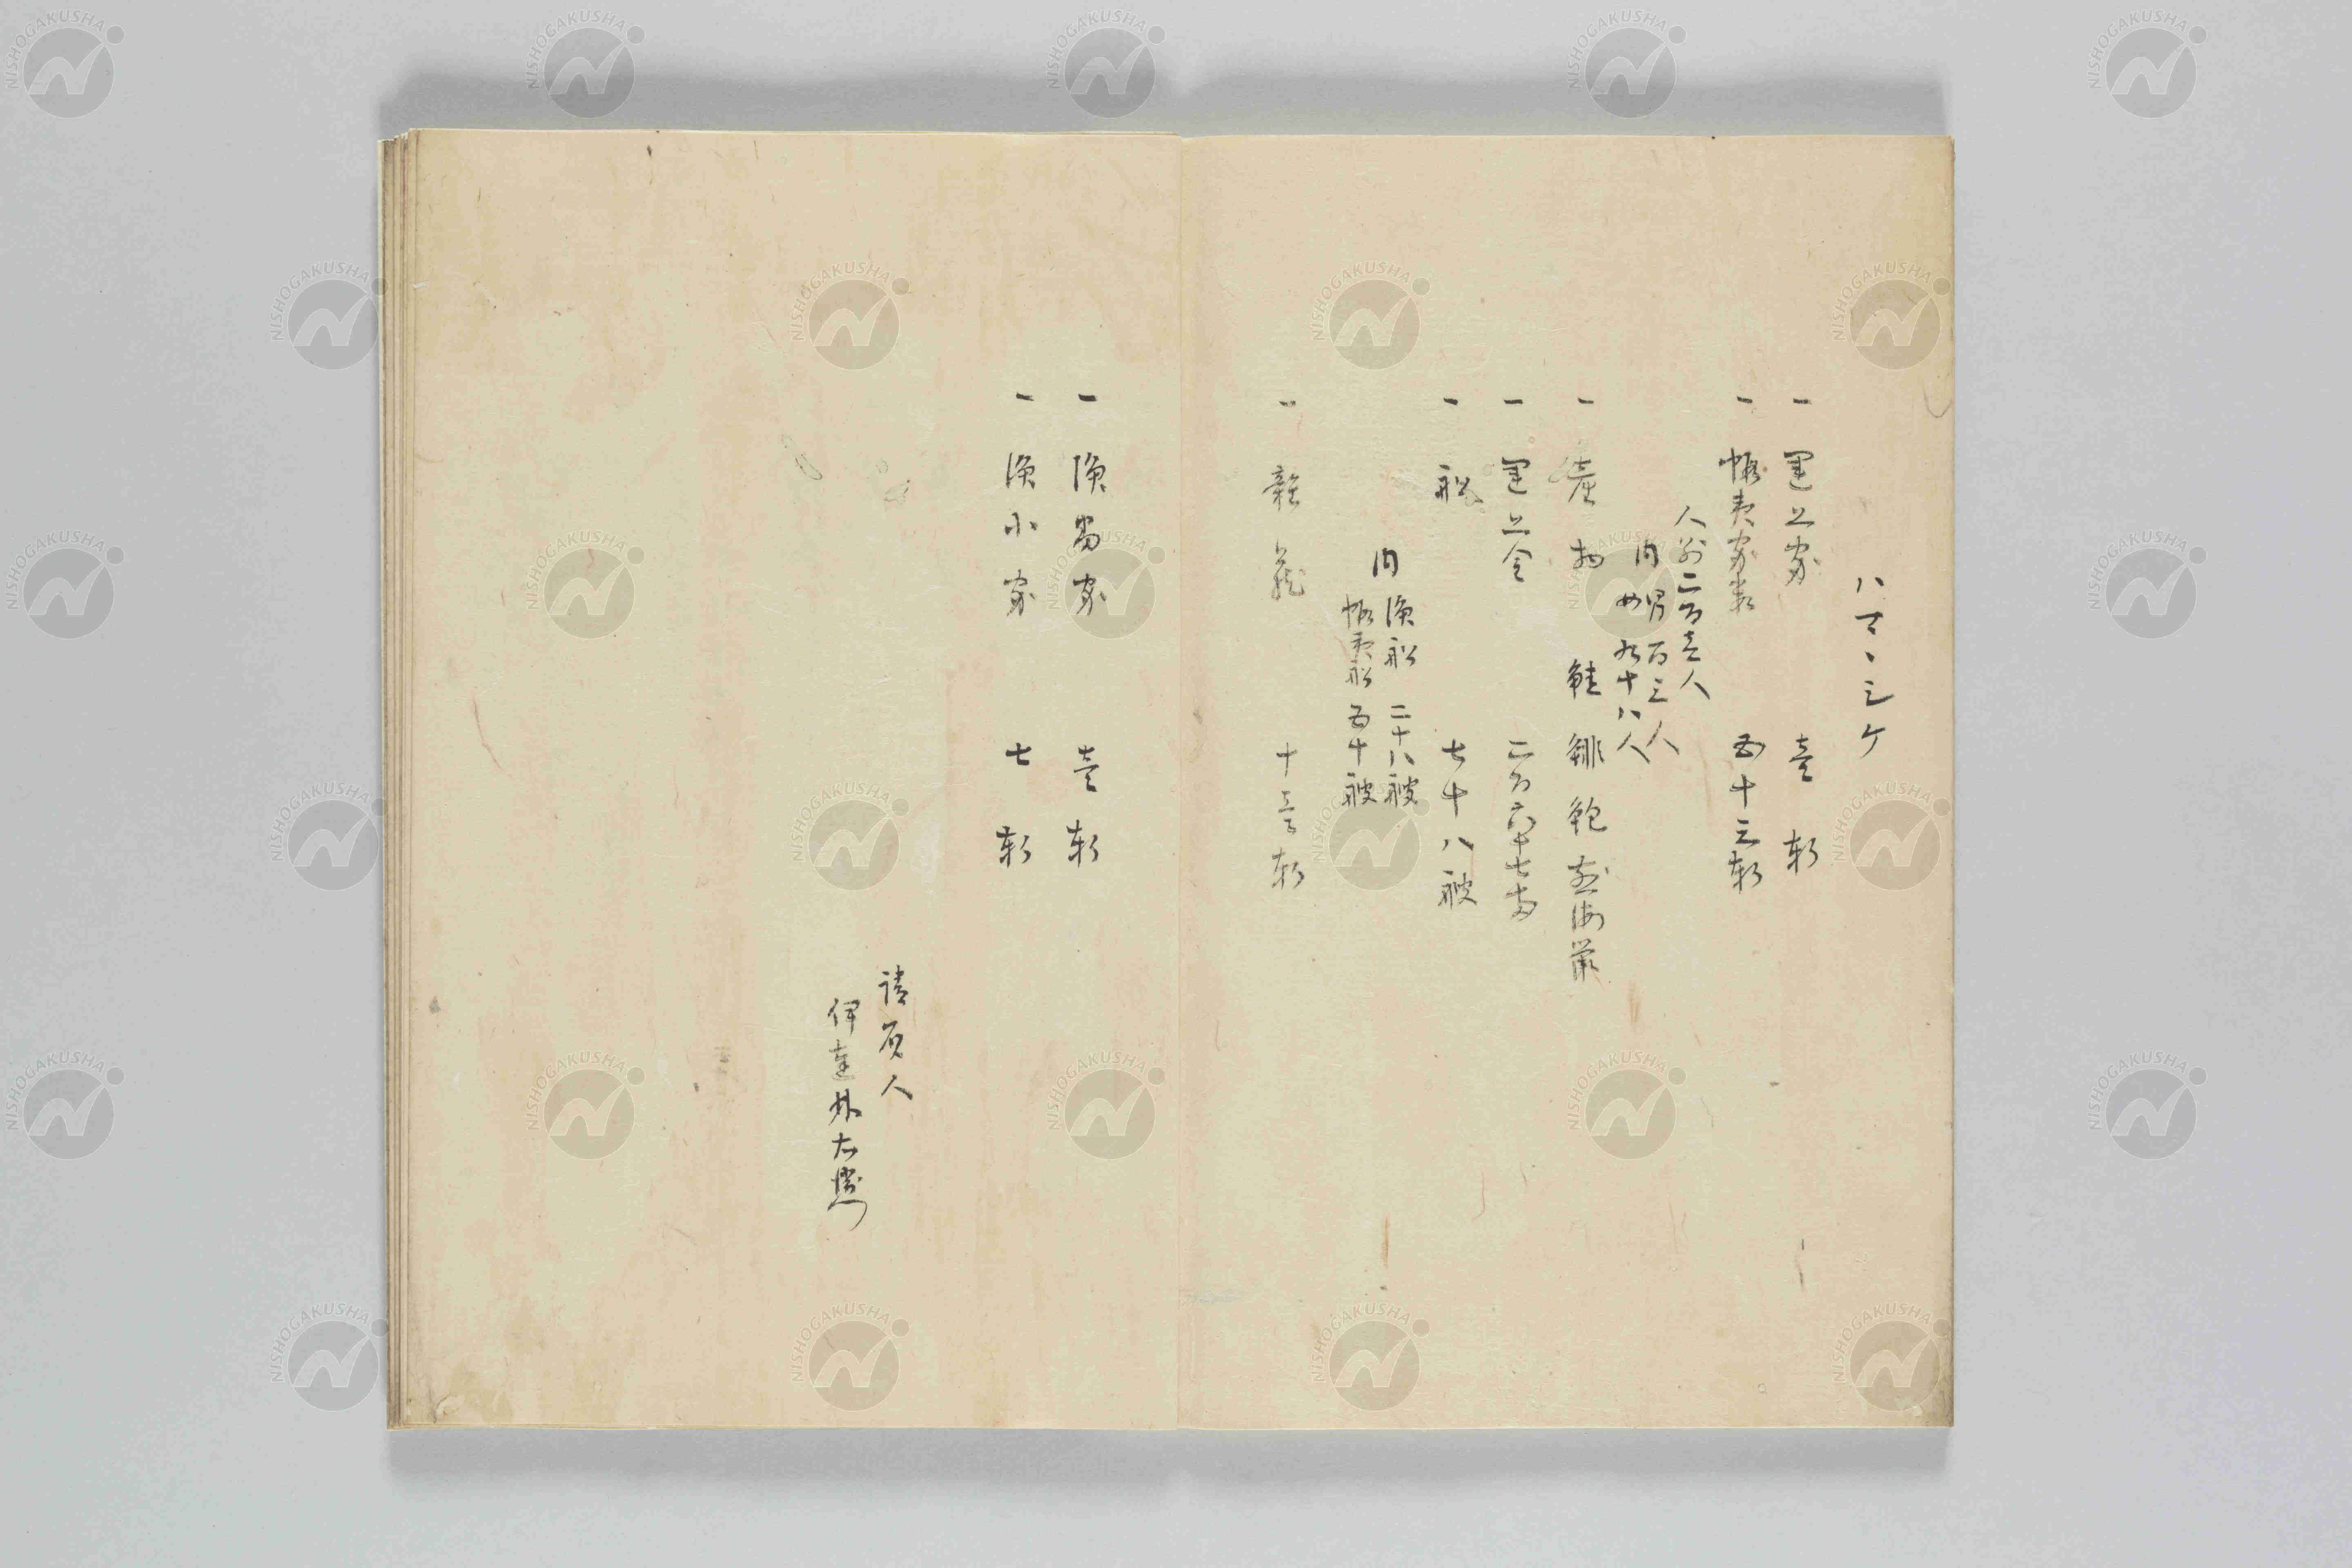 一 運上家 壱軒
一 蝦夷家数 五十三軒
人別二百壱人
内 男百三人
女九十八人
一 産物 鮭 鯡 鮑 海鼠
一 運上金 二百六十七両
一 船 七十八艘
内 漁船 二十八艘
蝦夷船 五十艘
一 雑蔵 十壱軒
一 漁番家 壱軒
一 漁小家 七軒
請負人
伊達林右衛門
NISHOGAKUSHA